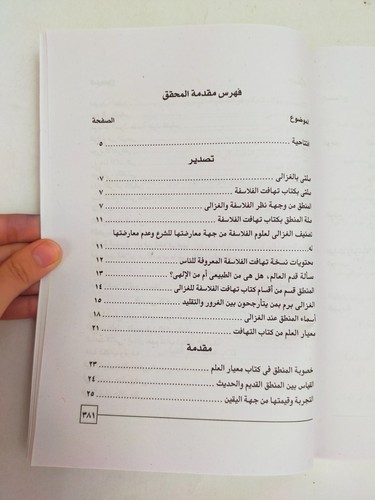 فهرس مقدمة المحقق
يوضوع الصفحة
نتتاحية ٥
تصدير
ملتي بالغزالى ٧
ملتي بكتاب تهافت الفلاسفة ٧
لمنطق من وجهة نظر الفلاسفة والغزالى ٧
ملة المنطق بكتاب تهافت الفلاسفة ١١
تصنيف الغزالى لعلوم الفلاسفة من جهة معارضتها للشرع وعدم معارضتها
له ١١
محتويات نسخة تهافت الفلاسفة المعروفة للناس ١٢
سألة قدم العالم، هل هى من الطبيعى أم من الإلهى؟ ١٣
لمنطق قسم من أقسام كتاب تهافت الفلاسفة للغزالى ١٤
لغزالى برم بمن يتأرجحون بين الغرور والتقليد ١٥
أسماء المنطق عند الغزالى ١٨
معيار العلم من كتاب التهافت ٢١
مقدمة
خصوبة المنطق في كتاب معيار العلم ٢٣
لقياس بين المنطق القديم والحديث ٢٤
لتجربة وقيمتها من جهة اليقين ٢٥
٣٨١